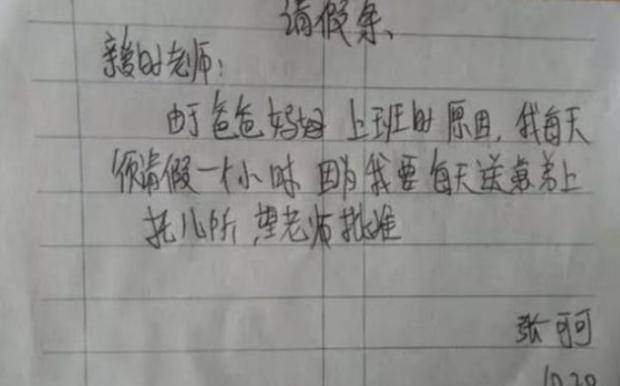 请假条、
亲爱的老师：
由于爸爸妈妈上班的原因，我每天
须请假一个小时因为我要每天送弟弟上
托儿所，望老师批准
张可可
10.20